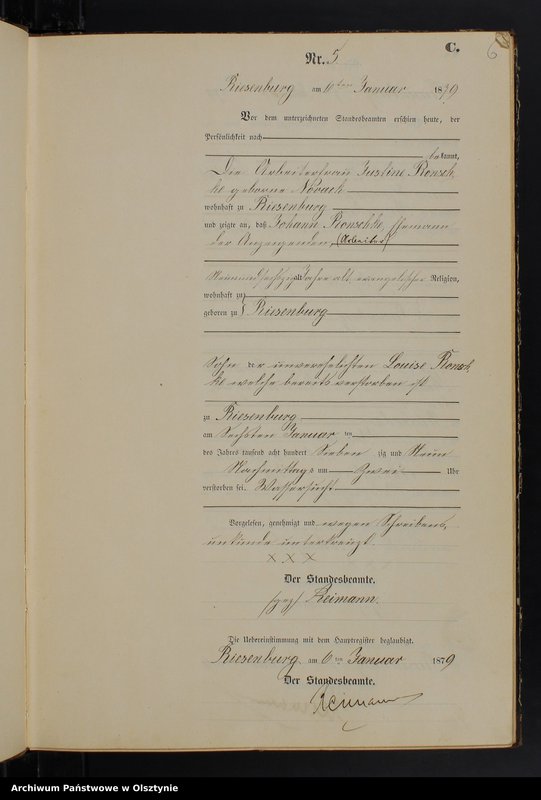 6
C.
Nr. 5
Riesenburg am 6ten Januar 1879
Vor dem unterzeichneten Standesbeamten erschien heute, der
Persönlichkeit nach
bekannt,
Die Arbeiterfrau Justine Ronsch
ke geborne Novack
wohnhaft zu Riesenburg
und zeigte an, daß Johann Ronschke, Ehemann
der Anzeigenden, (Arbeiter)
Jahre alt evangelischer Religion,
wohnhaft zu
geboren zu } Riesenburg
Sohn der unverehelichten Louise Ronsch
ke welche bereits verstorben ist
zu Riesenburg
am Sechsten Januar ten
des Jahres tausend acht hundert Sieben zig und Neun
Nachmittags um Zwei Uhr
verstorben sei. Wassersucht
Vorgelesen, genehmigt und wegen Schreibens,
unkunde unterkreuzt
X X X
Der Standesbeamte.
(gez) Reimann.
Die Uebereinstimmung mit dem Hauptregister beglaubigt.
Riesenburg, am 6 ten Januar 1879
Der Standesbeamte.
Reimann
Archiwum Państwowe w Olsztynie